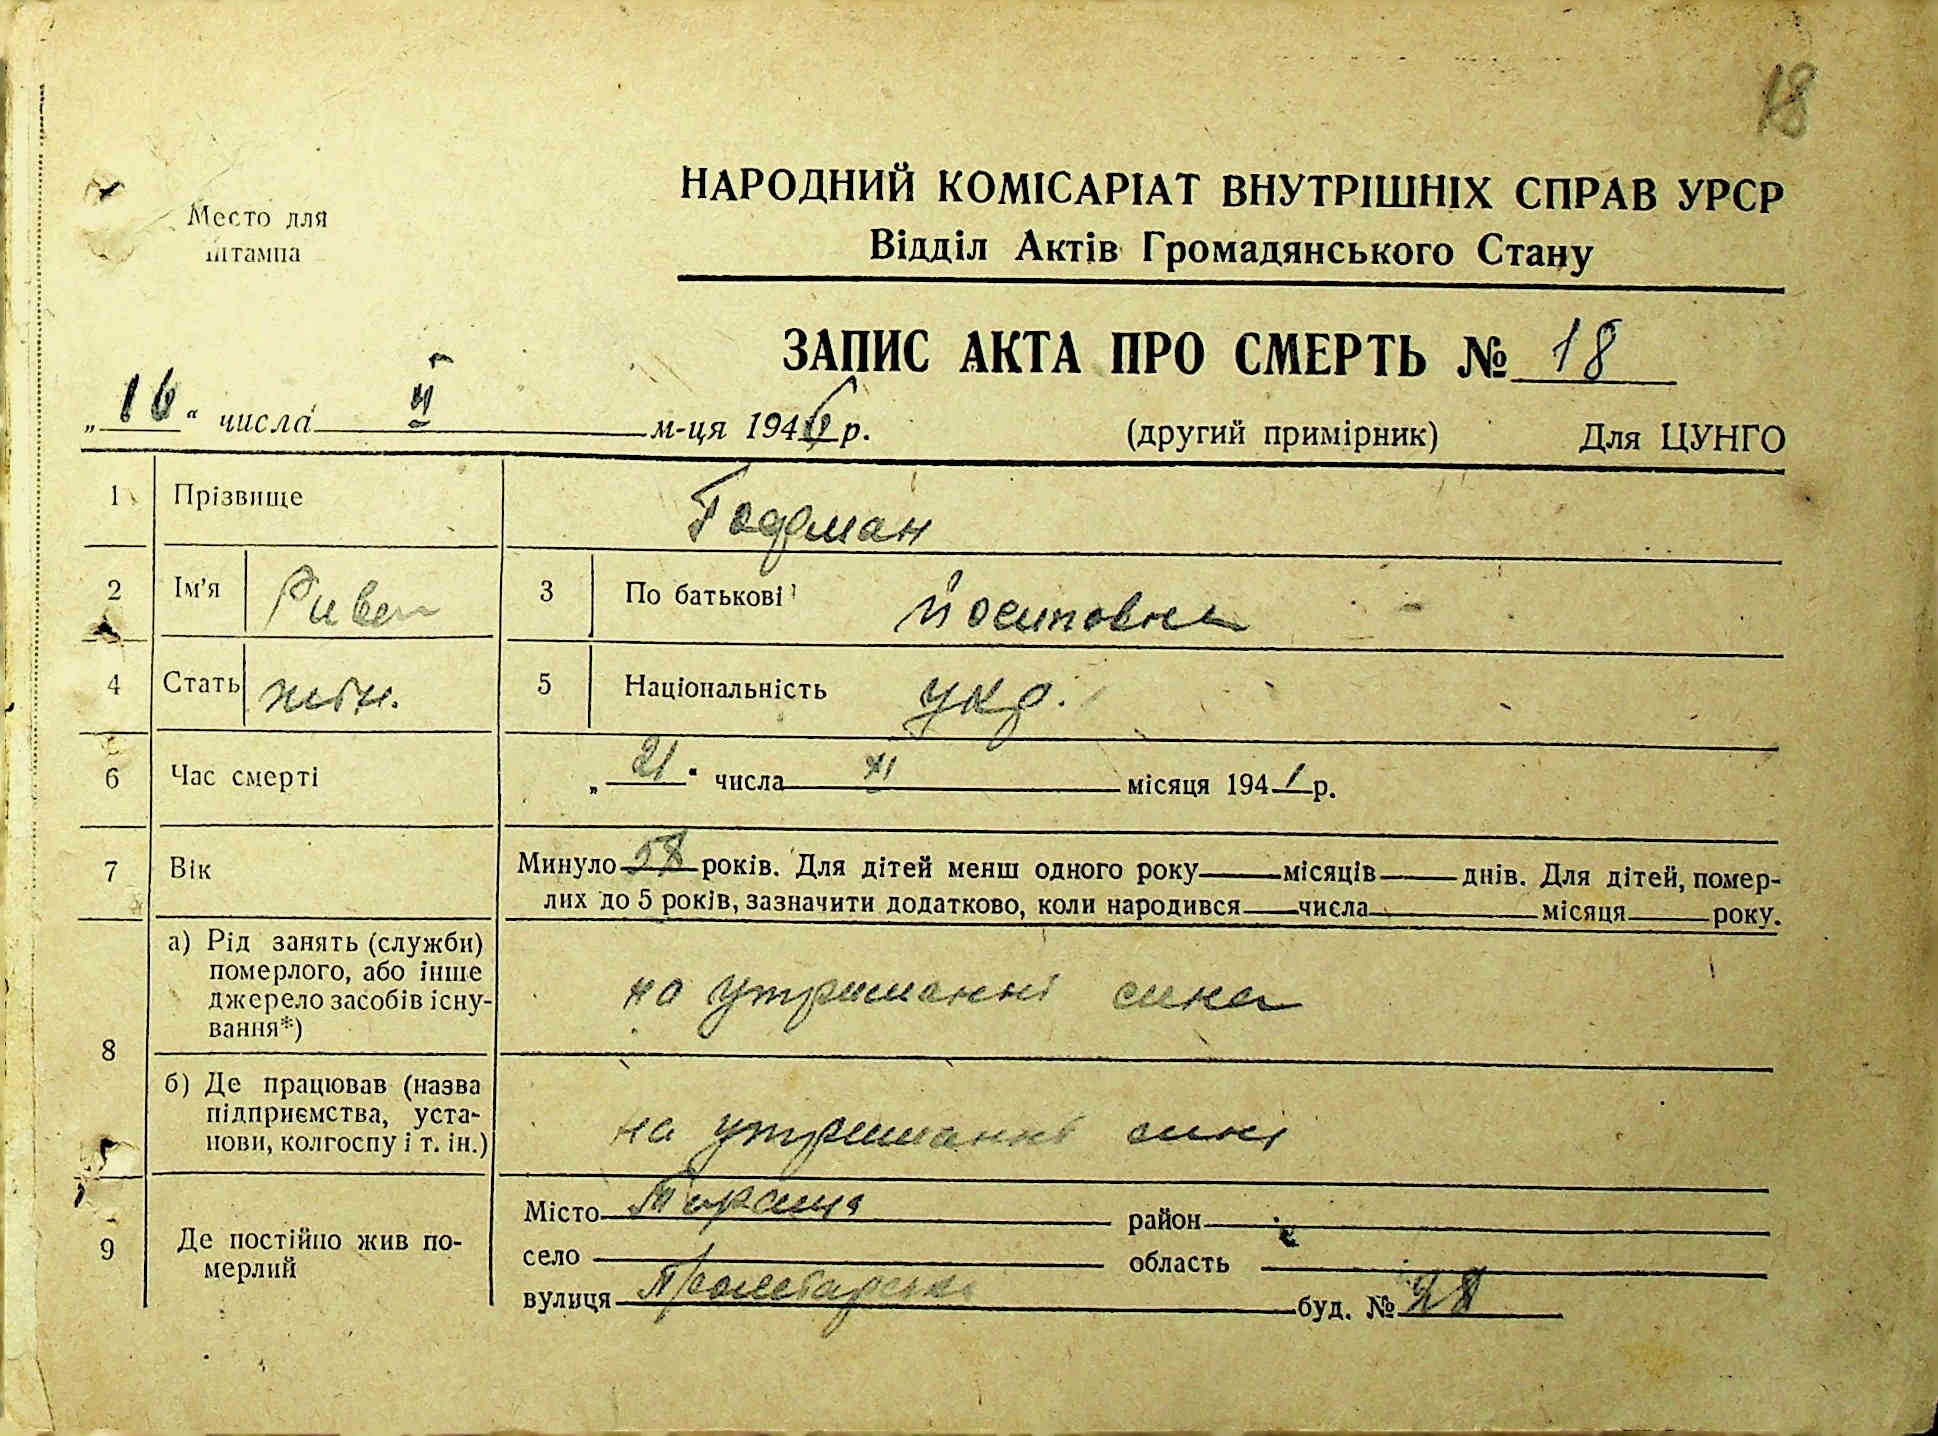 18
Место для
штампа
НАРОДНИЙ КОМІСАРІАТ ВНУТРІШНІХ СПРАВ УРСР
Відділ Актів Громадянського Стану
ЗАПИС АКТА ПРО СМЕРТЬ № 18
„16“ числа II м-ця 194 р.
(другий примірник) Для ЦУНГО
1 Прізвище
2 Ім'я Ривел 3 По батькові Йосиповна
4 Стать жін. 5 Національність укр.
6 Час смерті „21“ числа XI місяця 1941 р.
7 Вік Минуло 58 років. Для дітей менш одного року місяців днів. Для дітей, помер-
лих до 5 років, зазначити додатково, коли народився числа місяця року.
8 а) Рід занять (служби)
померлого, або інше
джерело засобів існу-
вання*) на утриманні сина
б) Де працював (назва
підприємства, уста-
нови, колгоспу і т. ін.) на утриманні сина
9 Де постійно жив по-
мерлий
Місто район
село область
вулиця Пролетарська буд. № 28